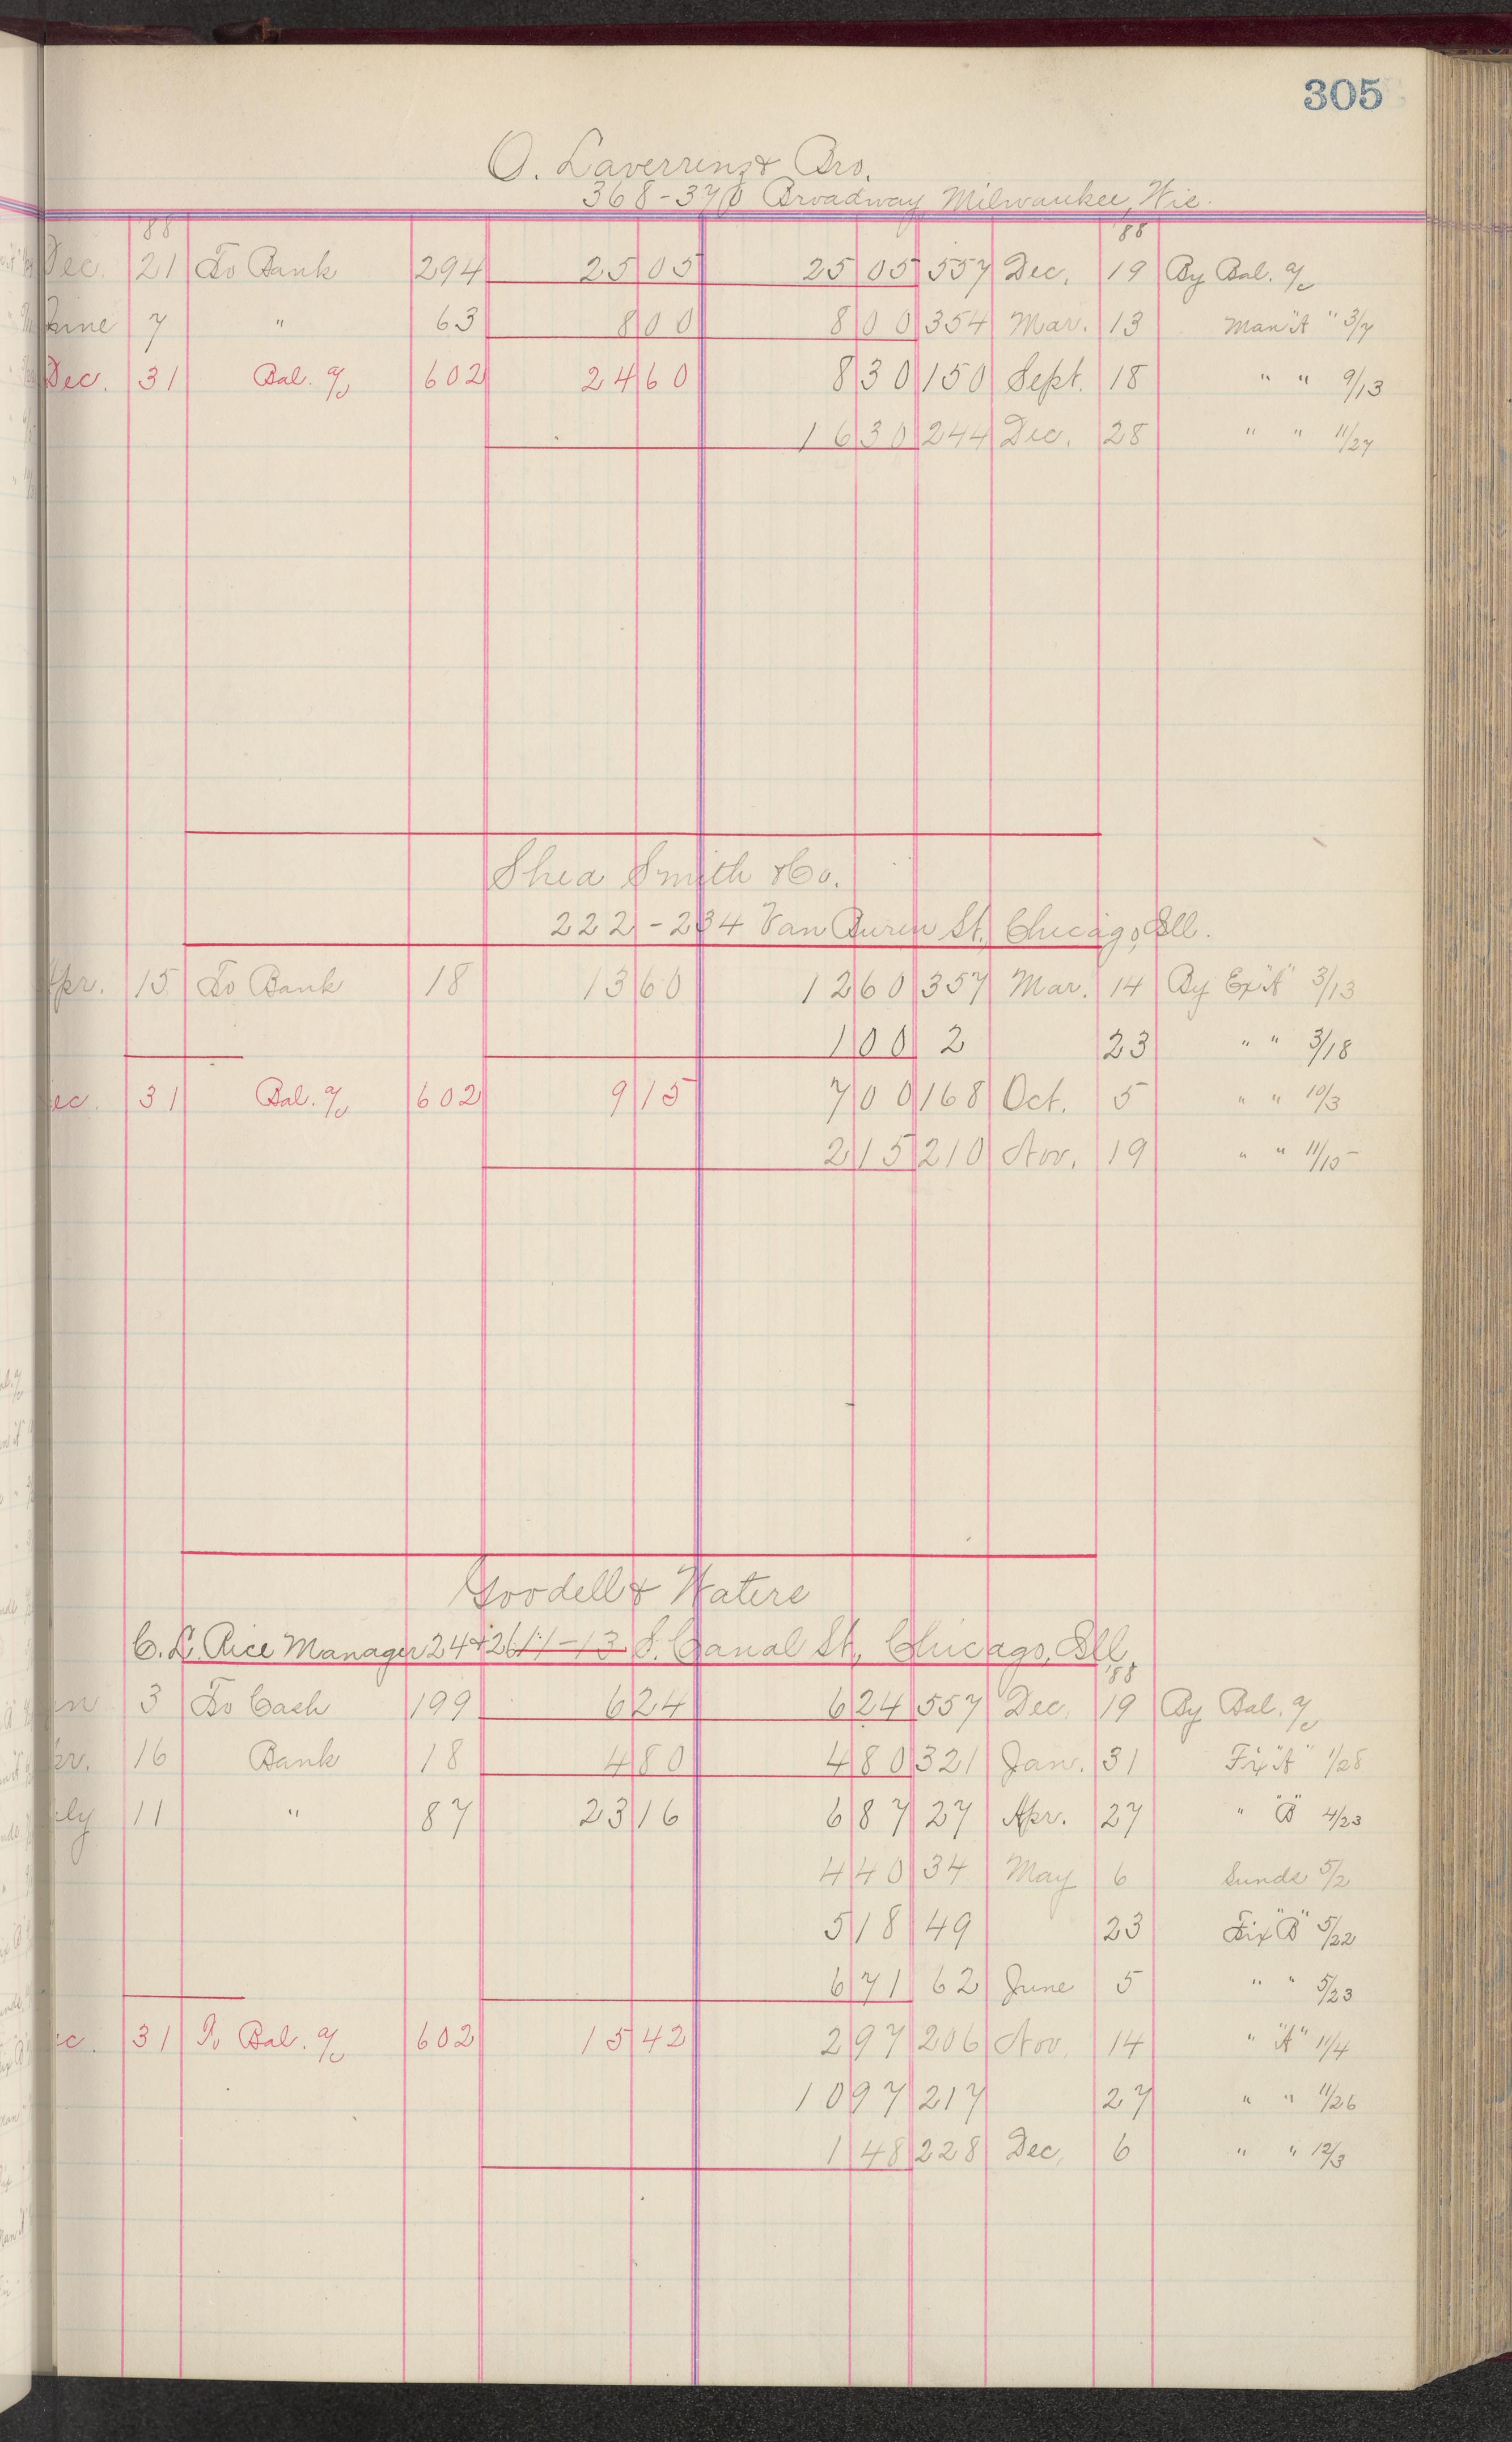 305
O. Laverrenz & Bro.
368-370 Broadway Milwaukee, Wis.
'88 '88
Dec. 21 To Bank 294 25 05 25 05 557 Dec. 19 By Bal. a/c
June 7 " 63 8 00 8 00 354 Mar. 13 Man "A" 3/7
Dec. 31 Bal. a/c 602 24 60 8 30 150 Sept. 18 " " 9/13
16 30 244 Dec. 28 " " 11/27
Shea Smith & Co.
222-234 Van Buren St., Chicago, Ill.
Apr. 15 To Bank 18 13 60 12 60 357 Mar. 14 By Ex "A" 3/13
1 00 2 23 " " 3/18
ec. 31 Bal. a/c 602 9 15 7 00 168 Oct. 5 " " 10/3
2 15 210 Nov. 19 " " 11/15
Goodell & Waters
C. L. Rice Manager 24 & 26 11-13 S. Canal St., Chicago, Ill.
'88
an 3 To Cash 199 6 24 6 24 557 Dec. 19 By Bal. a/c
pr. 16 Bank 18 4 80 4 80 321 Jan. 31 Fix "A" 1/28
uly 11 " 87 23 16 6 87 27 Apr. 27 " "B" 4/23
4 40 34 May 6 Sunds 5/2
5 18 49 23 Fix "B" 5/22
6 71 62 June 5 " " 5/23
ec. 31 To Bal. a/c 602 15 42 2 97 206 Nov. 14 " "A" 11/4
10 97 217 27 " " 11/26
1 48 228 Dec. 6 " " 12/3